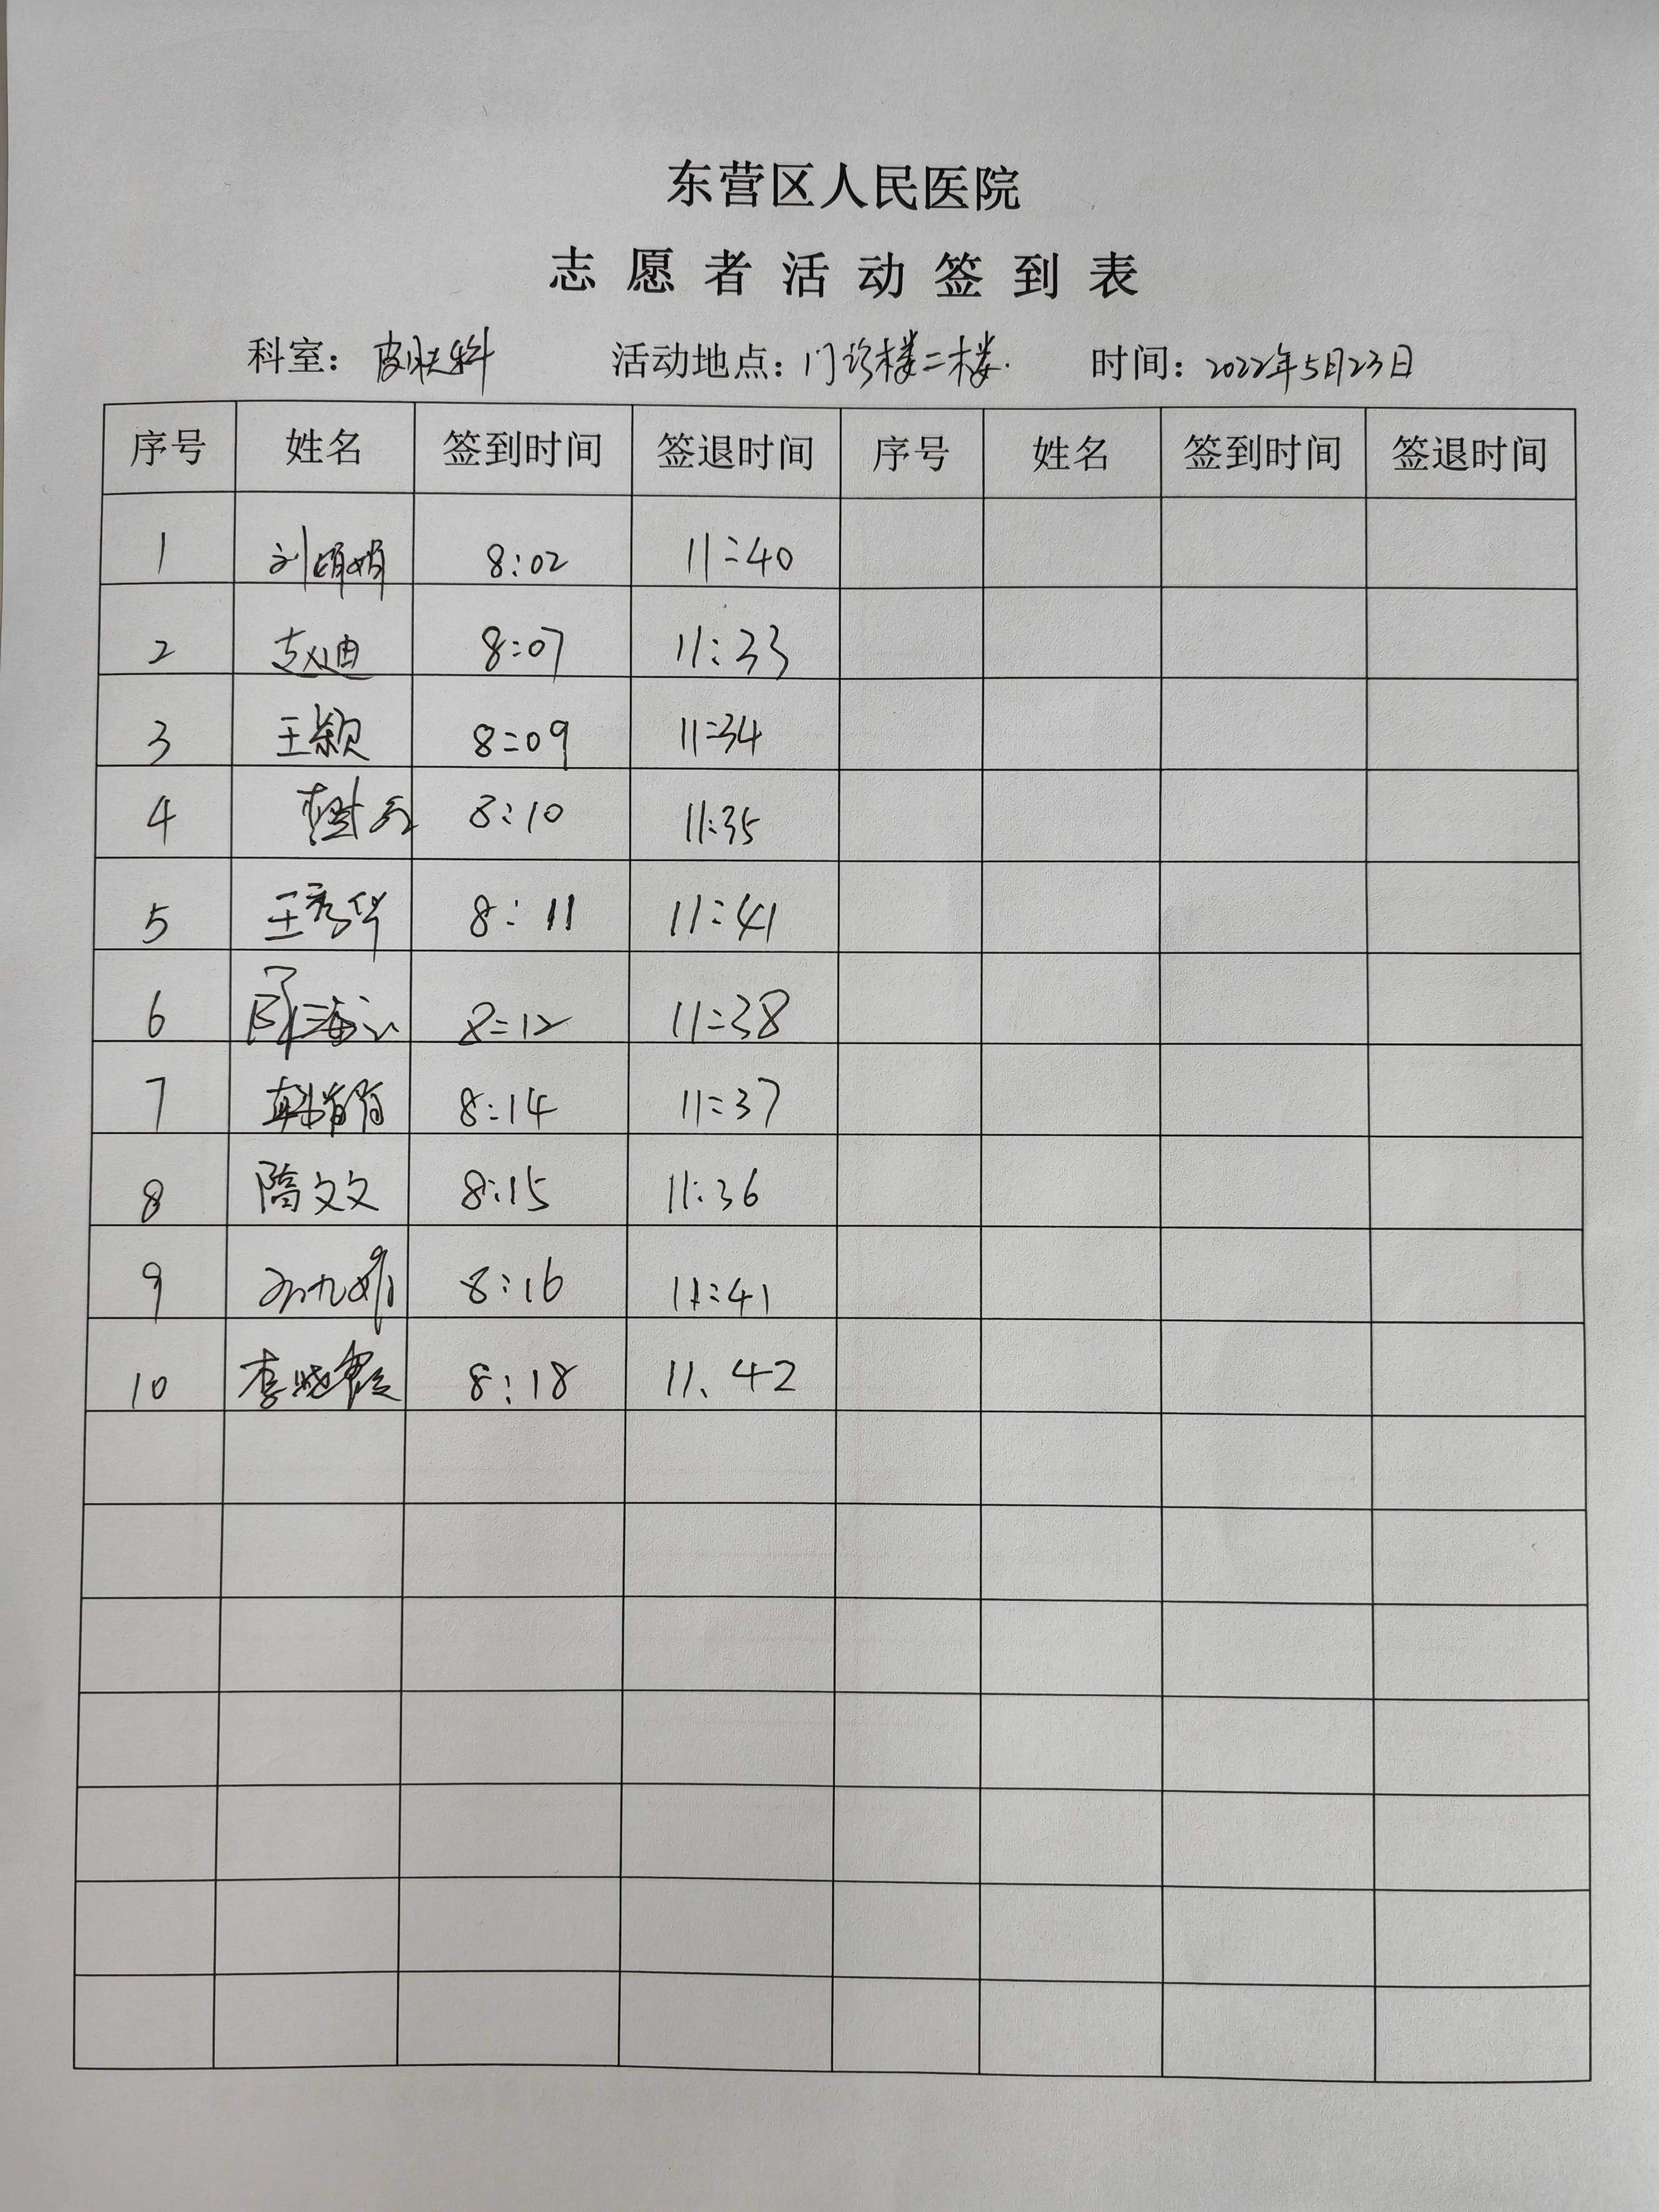 东营区人民医院
志愿者活动签到表
科室：皮肤科 活动地点：门诊楼二楼. 时间：2022年5月23日
序号 姓名 签到时间 签退时间 序号 姓名 签到时间 签退时间
1 刘娟娟 8:02 11:40
2 赵迪 8:07 11:33
3 王颖 8:09 11:34
4 8:10 11:35
5 王秀华 8:11 11:41
6 8:12 11:38
7 韩 8:14 11:37
8 隋文文 8:15 11:36
9 8:16 11:41
10 李晓霞 8:18 11、42